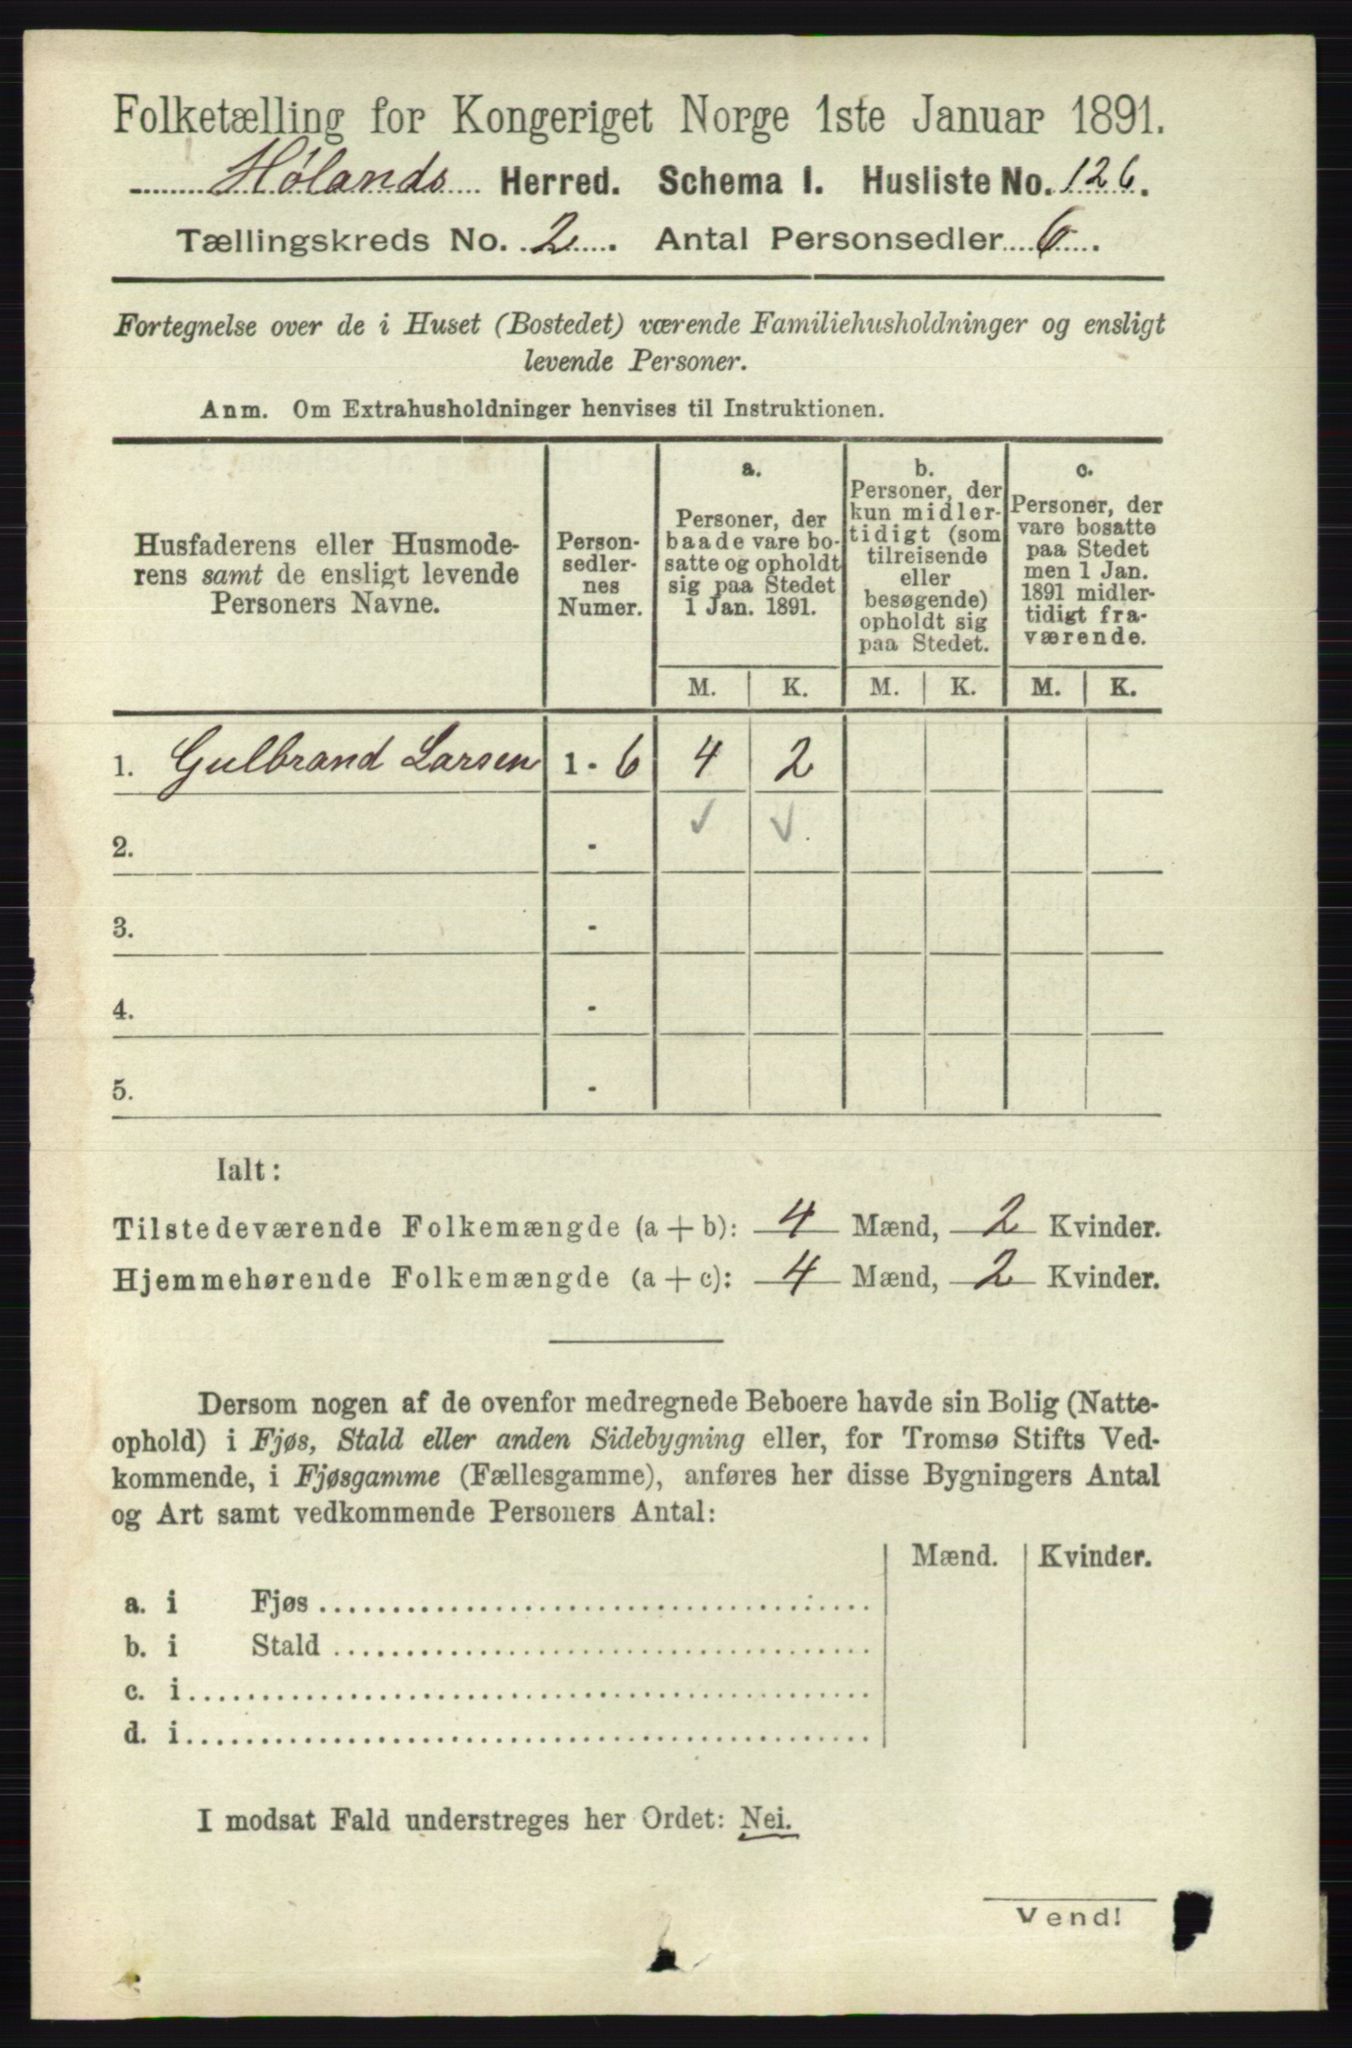 Folketælling for Kongeriget Norge 1ste Januar 1891.
Hølands Herred. Schema I. Husliste No. 126.
Tællingskreds No. 2. Antal Personsedler 6.
Fortegnelse over de i Huset (Bostedet) værende Familiehusholdninger og ensligt
levende Personer.
Anm. Om Extrahusholdninger henvises til Instruktionen.
Husfaderens eller Husmode-
rens samt de ensligt levende
Personers Navne.
Person-
sedler-
nes
Numer.
a.
Personer, der
baade vare bo-
satte og opholdt
sig paa Stedet
1 Jan. 1891.
b.
Personer, der
kun midler-
tidigt (som
tilreisende
eller
besøgende)
opholdt sig
paa Stedet.
c.
Personer, der
vare bosatte
paa Stedet
men 1 Jan.
1891 midler-
tidigt fra-
værende.
M. K. M. K. M. K.
1. Gulbrand Larsen 1 - 6 4 2
2. - ✓ ✓
3. -
4. -
5. -
Ialt:
Tilstedeværende Folkemængde (a + b): 4 Mænd, 2 Kvinder.
Hjemmehørende Folkemængde (a + c): 4 Mænd, 2 Kvinder.
Dersom nogen af de ovenfor medregnede Beboere havde sin Bolig (Natte-
ophold) i Fjøs, Stald eller anden Sidebygning eller, for Tromsø Stifts Ved-
kommende, i Fjøsgamme (Fællesgamme), anføres her disse Bygningers Antal
og Art samt vedkommende Personers Antal:
Mænd. Kvinder.
a. i Fjøs
b. i Stald
c. i
d. i
I modsat Fald understreges her Ordet: Nei.
Vend!